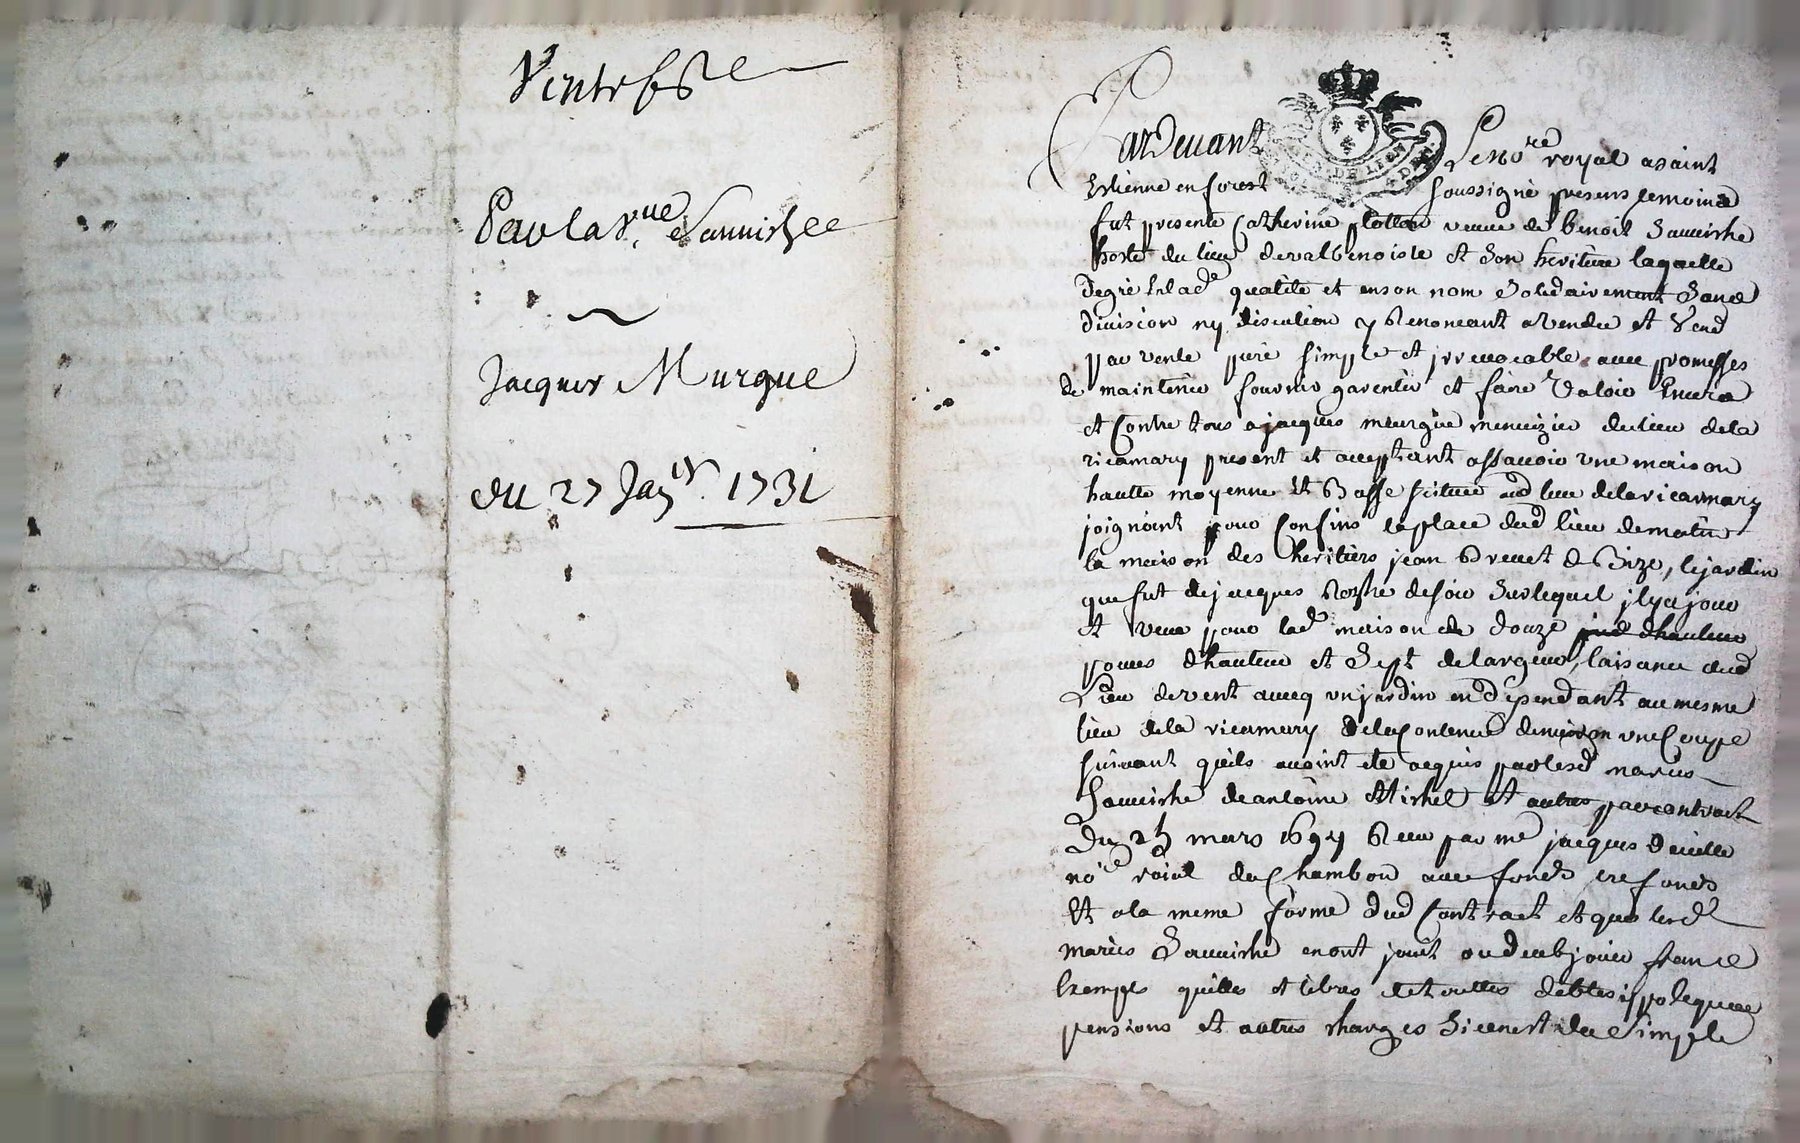 Vente
Par la v.ue Sauuishe
Jacques Murgue
du 27 Janer. 1731
Pardeuant Le nore royal a saint
Estienne en forest soussigné presens temoins
fut presente Catherine plotton veuue de benoit Sauuishe
hoste du lieu de valbenoiste et son heritiere laquelle
de gré en lade qualité et en son nom Solidairement Sans
diuision ny discution y Renoncant a Vendu et Vend
par vente pure simple et jrreuocable auec promesses
de maintenir fournir garentir et faire Valoir Enuers
et Contre tous a jacques meurgue menuizier du lieu de la
ricamary present et acceptant assauoir vne maison
hautte moyenne et Basse scituée aud lieu de la ricammary
joignant pour Confins la place dud lieu de matin
la maison des heritiers jean Breuet de Bize, le jardin
que fut de jacques Roshe de soir Sur lequel jl y a jour
et veue pour lad maison de douze pied dhauteur
pouces dhauteur et Sept de largeur, laisance dud
lieu de vent auecq vn jardin en dependant au mesme
lieu de la ricamary de la Contenue denuiron vne Coupe
suiuant quils auoint eté acquis par lesd mariés
Sauuishe de antoine et autres par contract
du mars Receu par me jacques deuille
nore roial du Chambon auec fonds trefonds
Et a la meme forme dud Contract et que lesd
mariés Sauuishe en ont jouit ou deub jouir franc
Exempts quittes et libres de touttes debtes ippoteques
pensions et autres sharges Si cenest du Simple